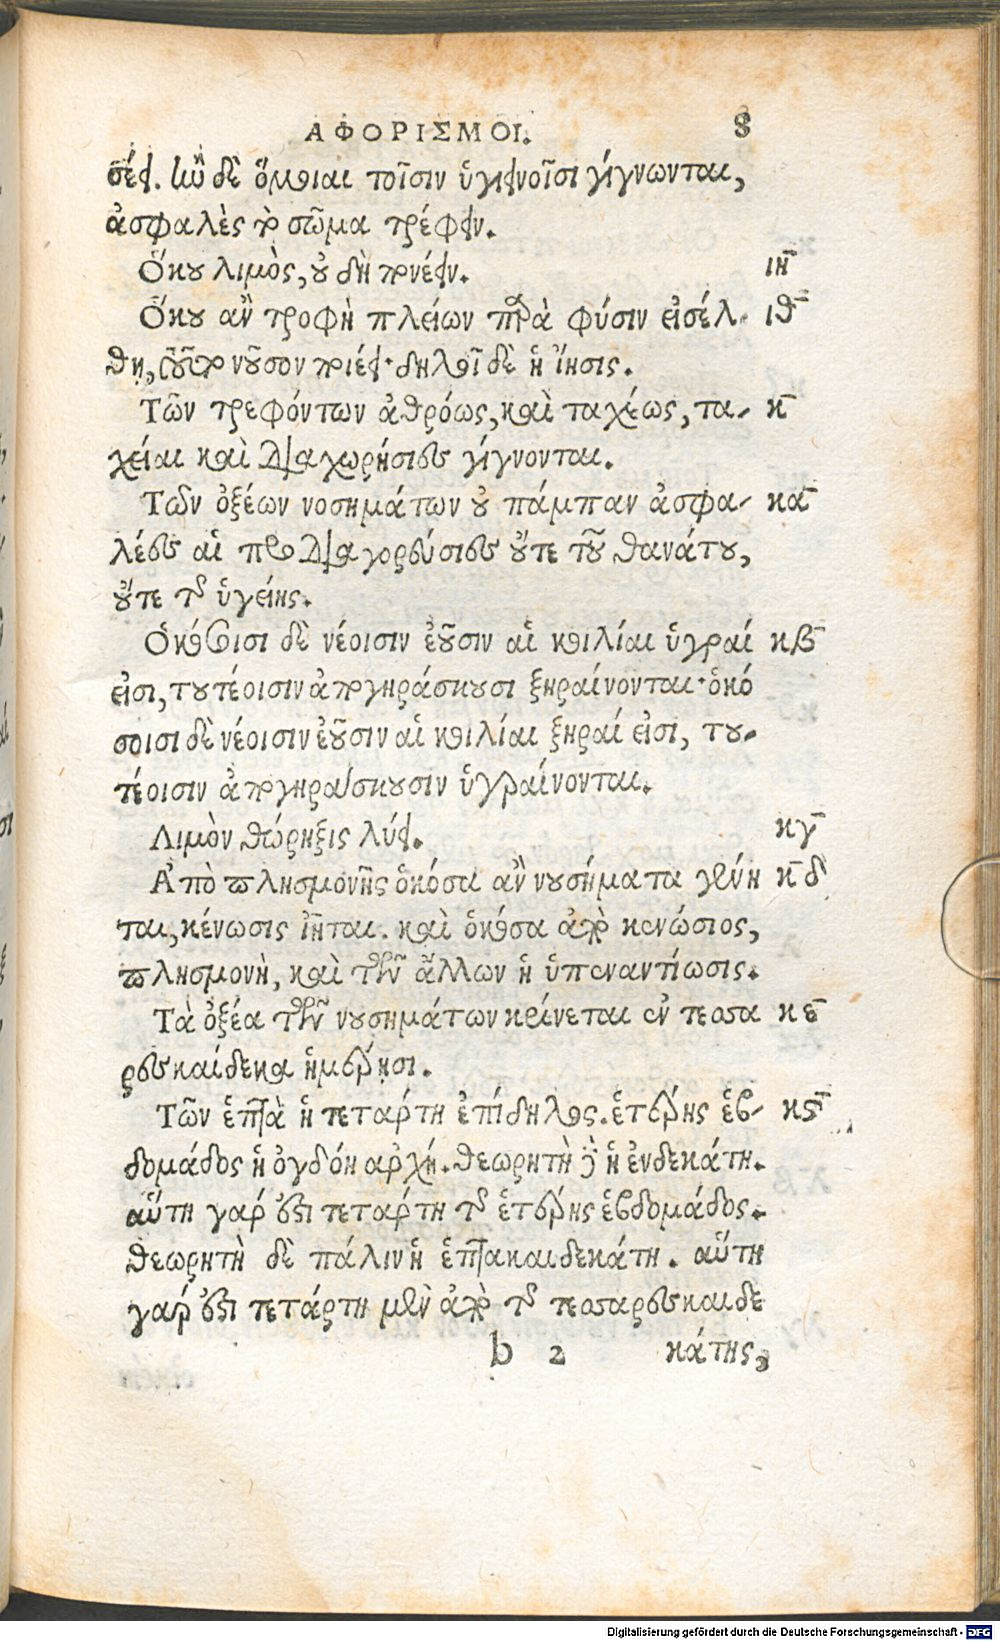 ΑΦΟΡΙΣΜΟΙ. 8
σέει. ἢν δὲ ὅμοιαι τοῖσιν ὑγιεινοῖσι γίγνωνται,
ἀσφαλὲς τὸ σῶμα τρέφειν.
Ὅκου λιμὸς, οὐ δεῖ πονέειν. ιη
Ὅκου ἂν τροφὴ πλείων παρὰ φύσιν εἰσέλ- ιθ
θῃ, τοῦτο νοῦσον ποιέει· δηλοῖ δὲ ἡ ἴησις.
Τῶν τρεφόντων ἀθρόως, καὶ ταχέως, τα- κ
χεῖαι καὶ διαχωρήσιες γίγνονται.
Τῶν ὀξέων νοσημάτων οὐ πάμπαν ἀσφα- κα
λέες αἱ προδιαγορεύσιες οὔτε τοῦ θανάτου,
οὔτε τῆς ὑγείης.
Ὁκόσοισι δὲ νέοισιν ἐοῦσιν αἱ κοιλίαι ὑγραί κβ
εἰσι, τουτέοισιν ἀπογηράσκουσι ξηραίνονται· ὁκό
σοισι δὲ νέοισιν ἐοῦσιν αἱ κοιλίαι ξηραί εἰσι, του-
τέοισιν ἀπογηράσκουσιν ὑγραίνονται.
Λιμὸν θώρηξις λύει. κγ
Ἀπὸ πλησμονῆς ὁκόσα ἂν νουσήματα γένη κδ
ται, κένωσις ἰῆται. καὶ ὁκόσα ἀπὸ κενώσιος,
πλησμονὴ, καὶ τῶν ἄλλων ἡ ὑπεναντίωσις.
Τὰ ὀξέα τῶν νουσημάτων κρίνεται ἐν τεσσα κε
ρεσκαίδεκα ἡμέρῃσι.
Τῶν ἑπτὰ ἡ τετάρτη ἐπίδηλος. ἑτέρης ἑβ- κϛ
δομάδος ἡ ὀγδόη ἀρχή. θεωρητὴ δὲ ἡ ἑνδεκάτη.
αὕτη γάρ ἐστι τετάρτη τῆς ἑτέρης ἑβδομάδος.
θεωρητὴ δὲ πάλιν ἡ ἑπτακαιδεκάτη. αὕτη
γάρ ἐστι τετάρτη μὲν ἀπὸ τῆς τεσσαρεσκαιδε
b 2 κάτης,
Digitalisierung gefördert durch die Deutsche Forschungsgemeinschaft - DFG